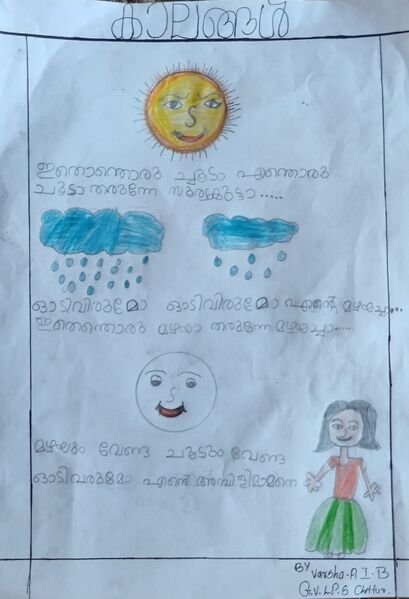 കാലങ്ങൾ
ഇതൊന്തൊരു ചൂടാ എന്തൊരു
ചൂടാ തരുന്നേ സൂര്യകുട്ടാ.....
ഓടിവിരുമോ ഓടിവിരുമോ എന്റെ മഴയച്ചാ...
ഇതെന്തൊരു മഴയാ തരുന്നേ മഴയച്ചാ....
മഴയും വേണ്ട ചൂടും വേണ്ട
ഓടിവരുമോ എന്റെ അമ്പിളിമാമനെ
BY Varsha.A I-B
G.V.L.P.S Chittur.